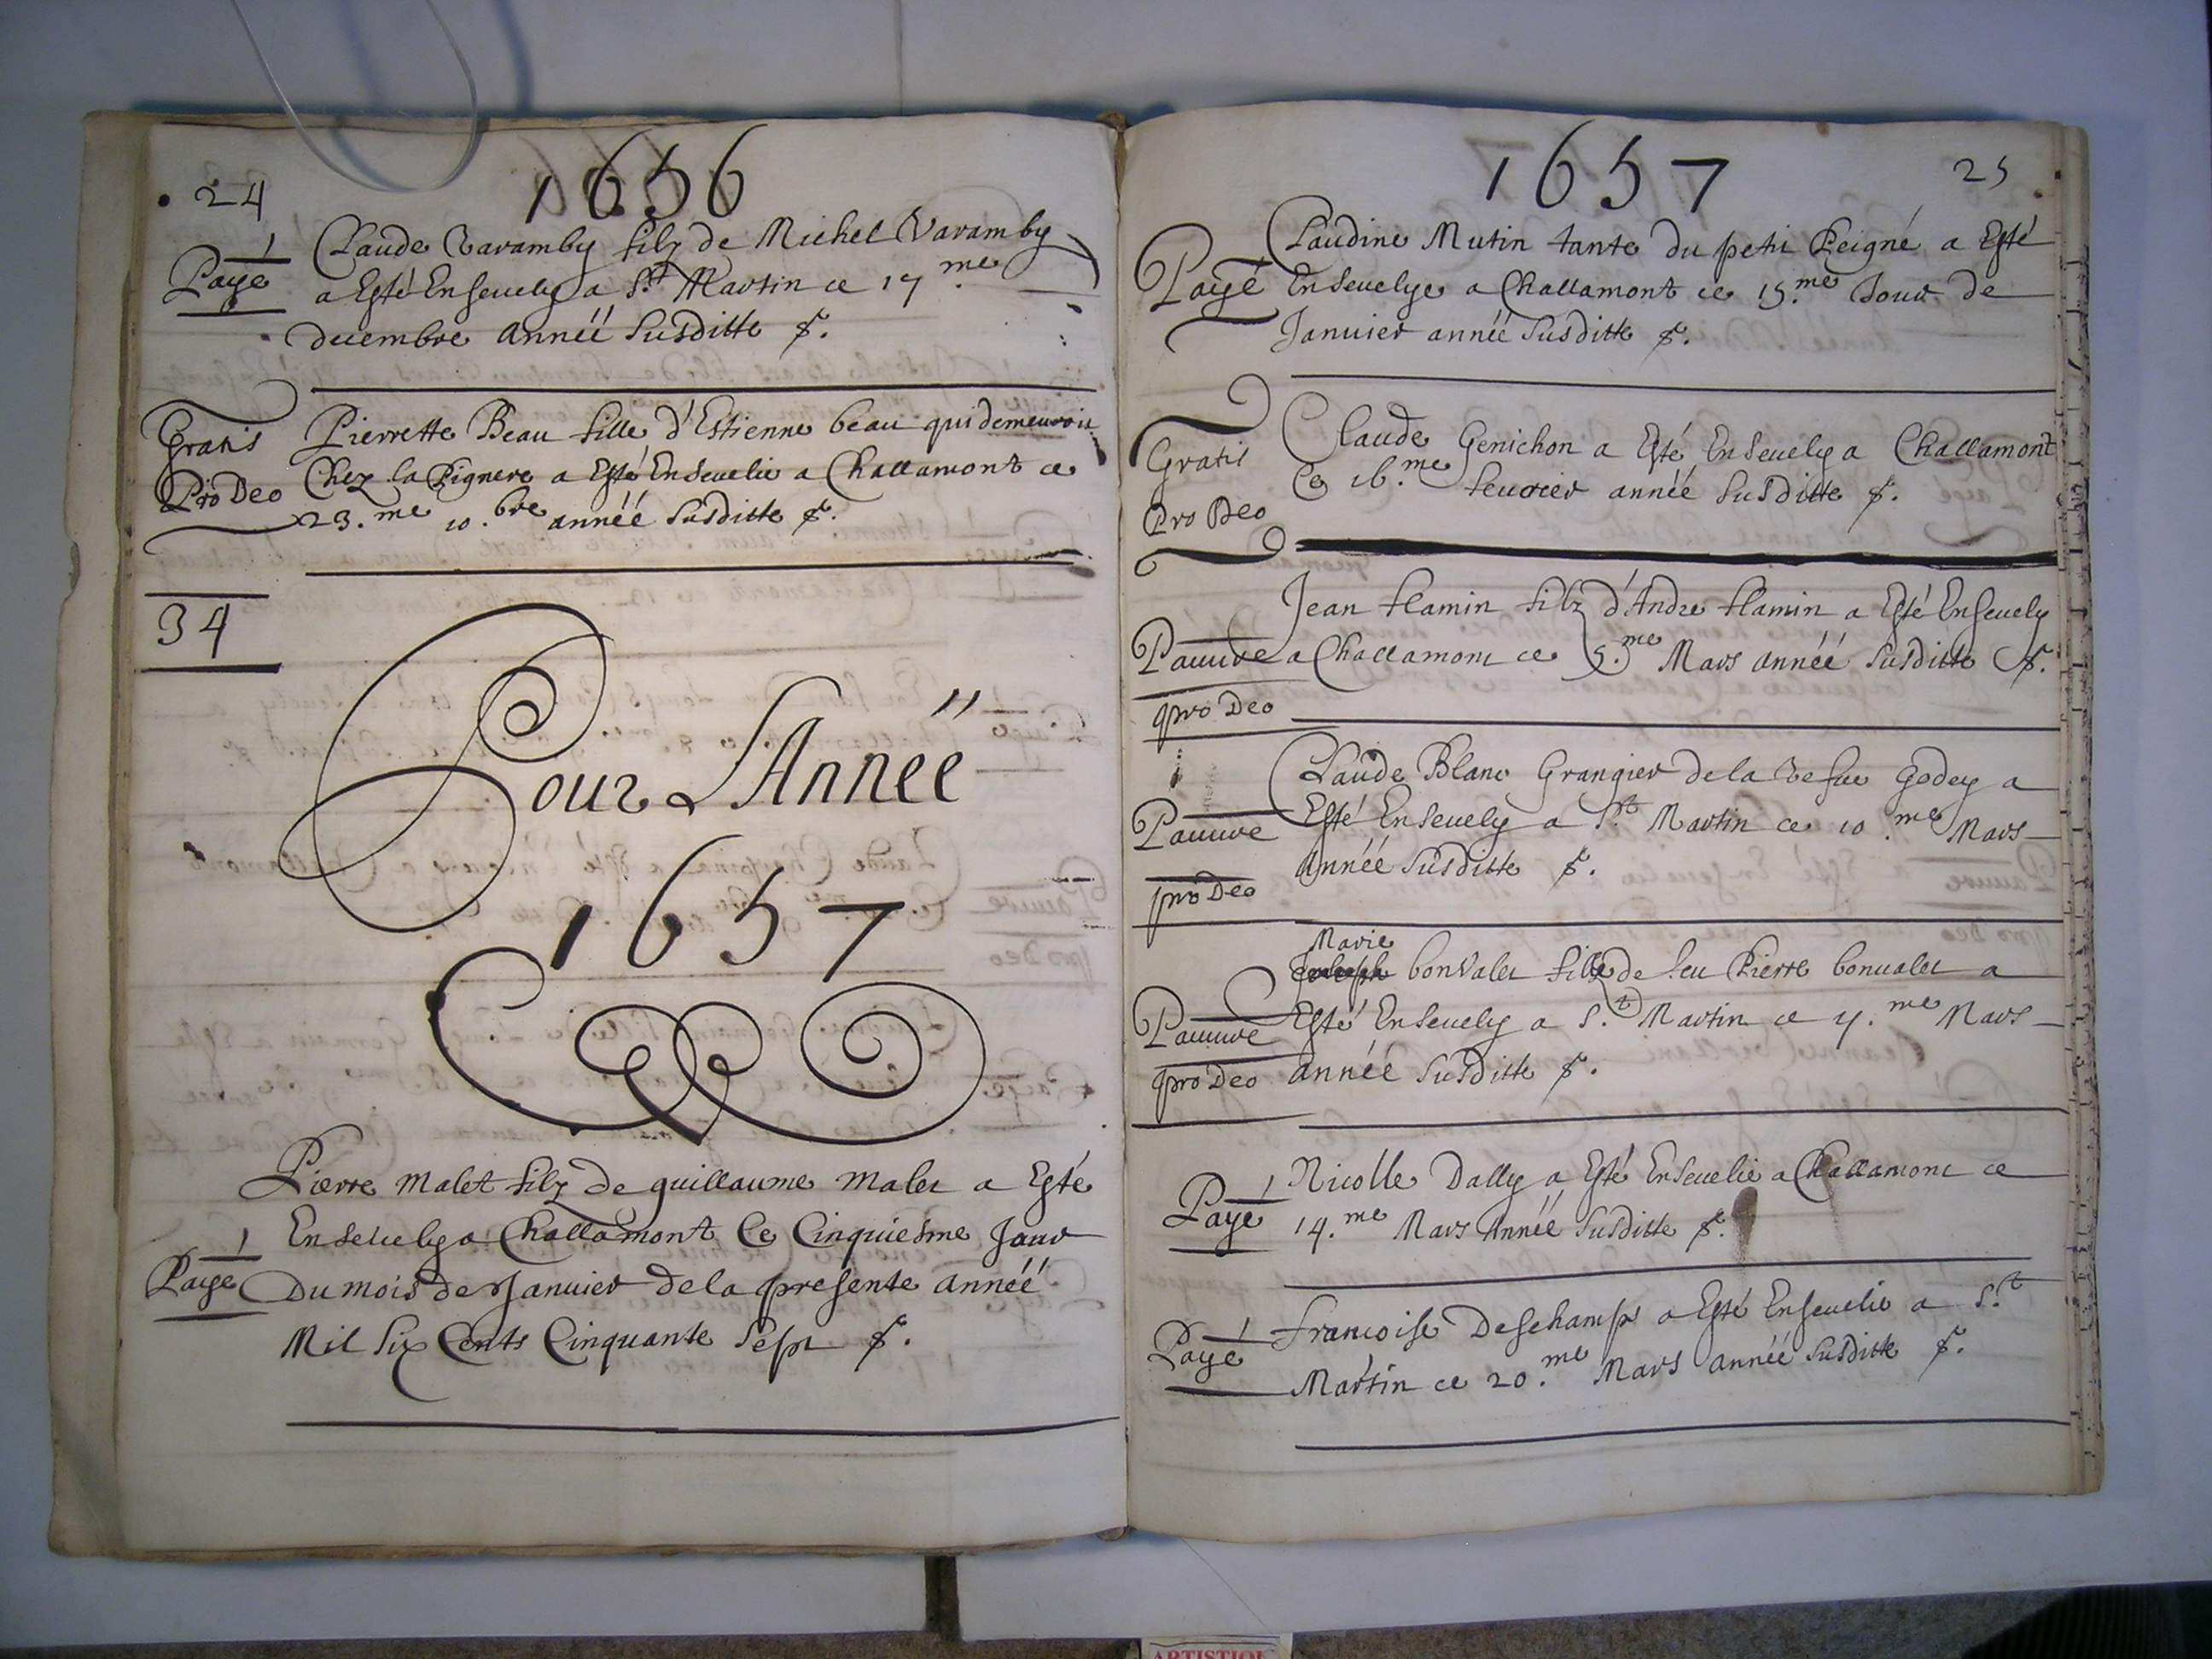 24
1656
Payé
Claude Varamby filz de Michel Varamby
a Esté Ensevely a S.t Martin ce 17.me
decembre Année Susditte &.
Gratis
Pro Deo
Pierrette Beau fille d'Estienne beau qui demeuroit
Chez la Pignere a Esté Ensevelie a Challamont ce
23.me 10.bre année Susditte &.
34
Pour L'Année
1657
Payé
Pierre Malet filz de guillaume malet a Esté
Ensevely a Challamont Ce Cinquiesme Jour
Du mois de Janvier de la presente année
Mil Six Cents Cinquante Sept &.
1657
25
Payé
Claudine Mutin tante du petit Peigné a Esté
Ensevelye a Challamont ce 15.me Jour de
Janvier année Susditte &.
Gratis
Pro Deo
Claude Genichon a Esté Ensevely a Challamont
Ce 16.me fevrier année Susditte &.
Pauvre
pro Deo
Jean flamin filz d'Andre flamin a Esté Ensevely
a Challamont ce 5.me Mars année Susditte &.
Pauvre
pro Deo
Claude Blanc Grangier de la vefve Godey a
Esté Ensevely a S.t Martin ce 10.me Mars
Année Susditte &.
Pauvre
pro Deo
Marie
bonvalet fille de feu Pierre bonvalet a
Esté Ensevely a S.t Martin ce me Mars
année Susditte &.
Payé
Nicolle Dally a Esté Ensevelie a Challamont ce
14.me Mars Année Susditte &.
Payé
francoise Deschamps a Esté Ensevelie a S.t
Martin ce 20.me Mars année Susditte &.